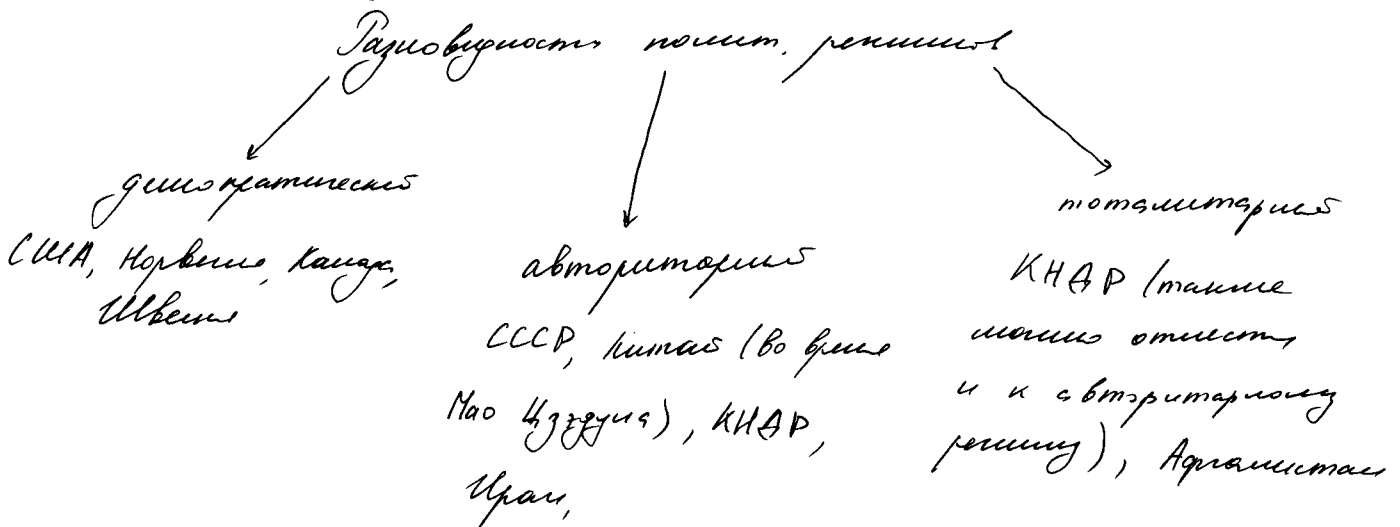 Разновидность полит. режимов
демократический
США, Норвегия, Канада,
Швеция
авториторный
СССР, Китай (во время
Мао Цзэдуна), КНДР,
Иран,
тоталитарный
КНДР (также
можно отнести
и к авторитарному
режиму), Афганистан